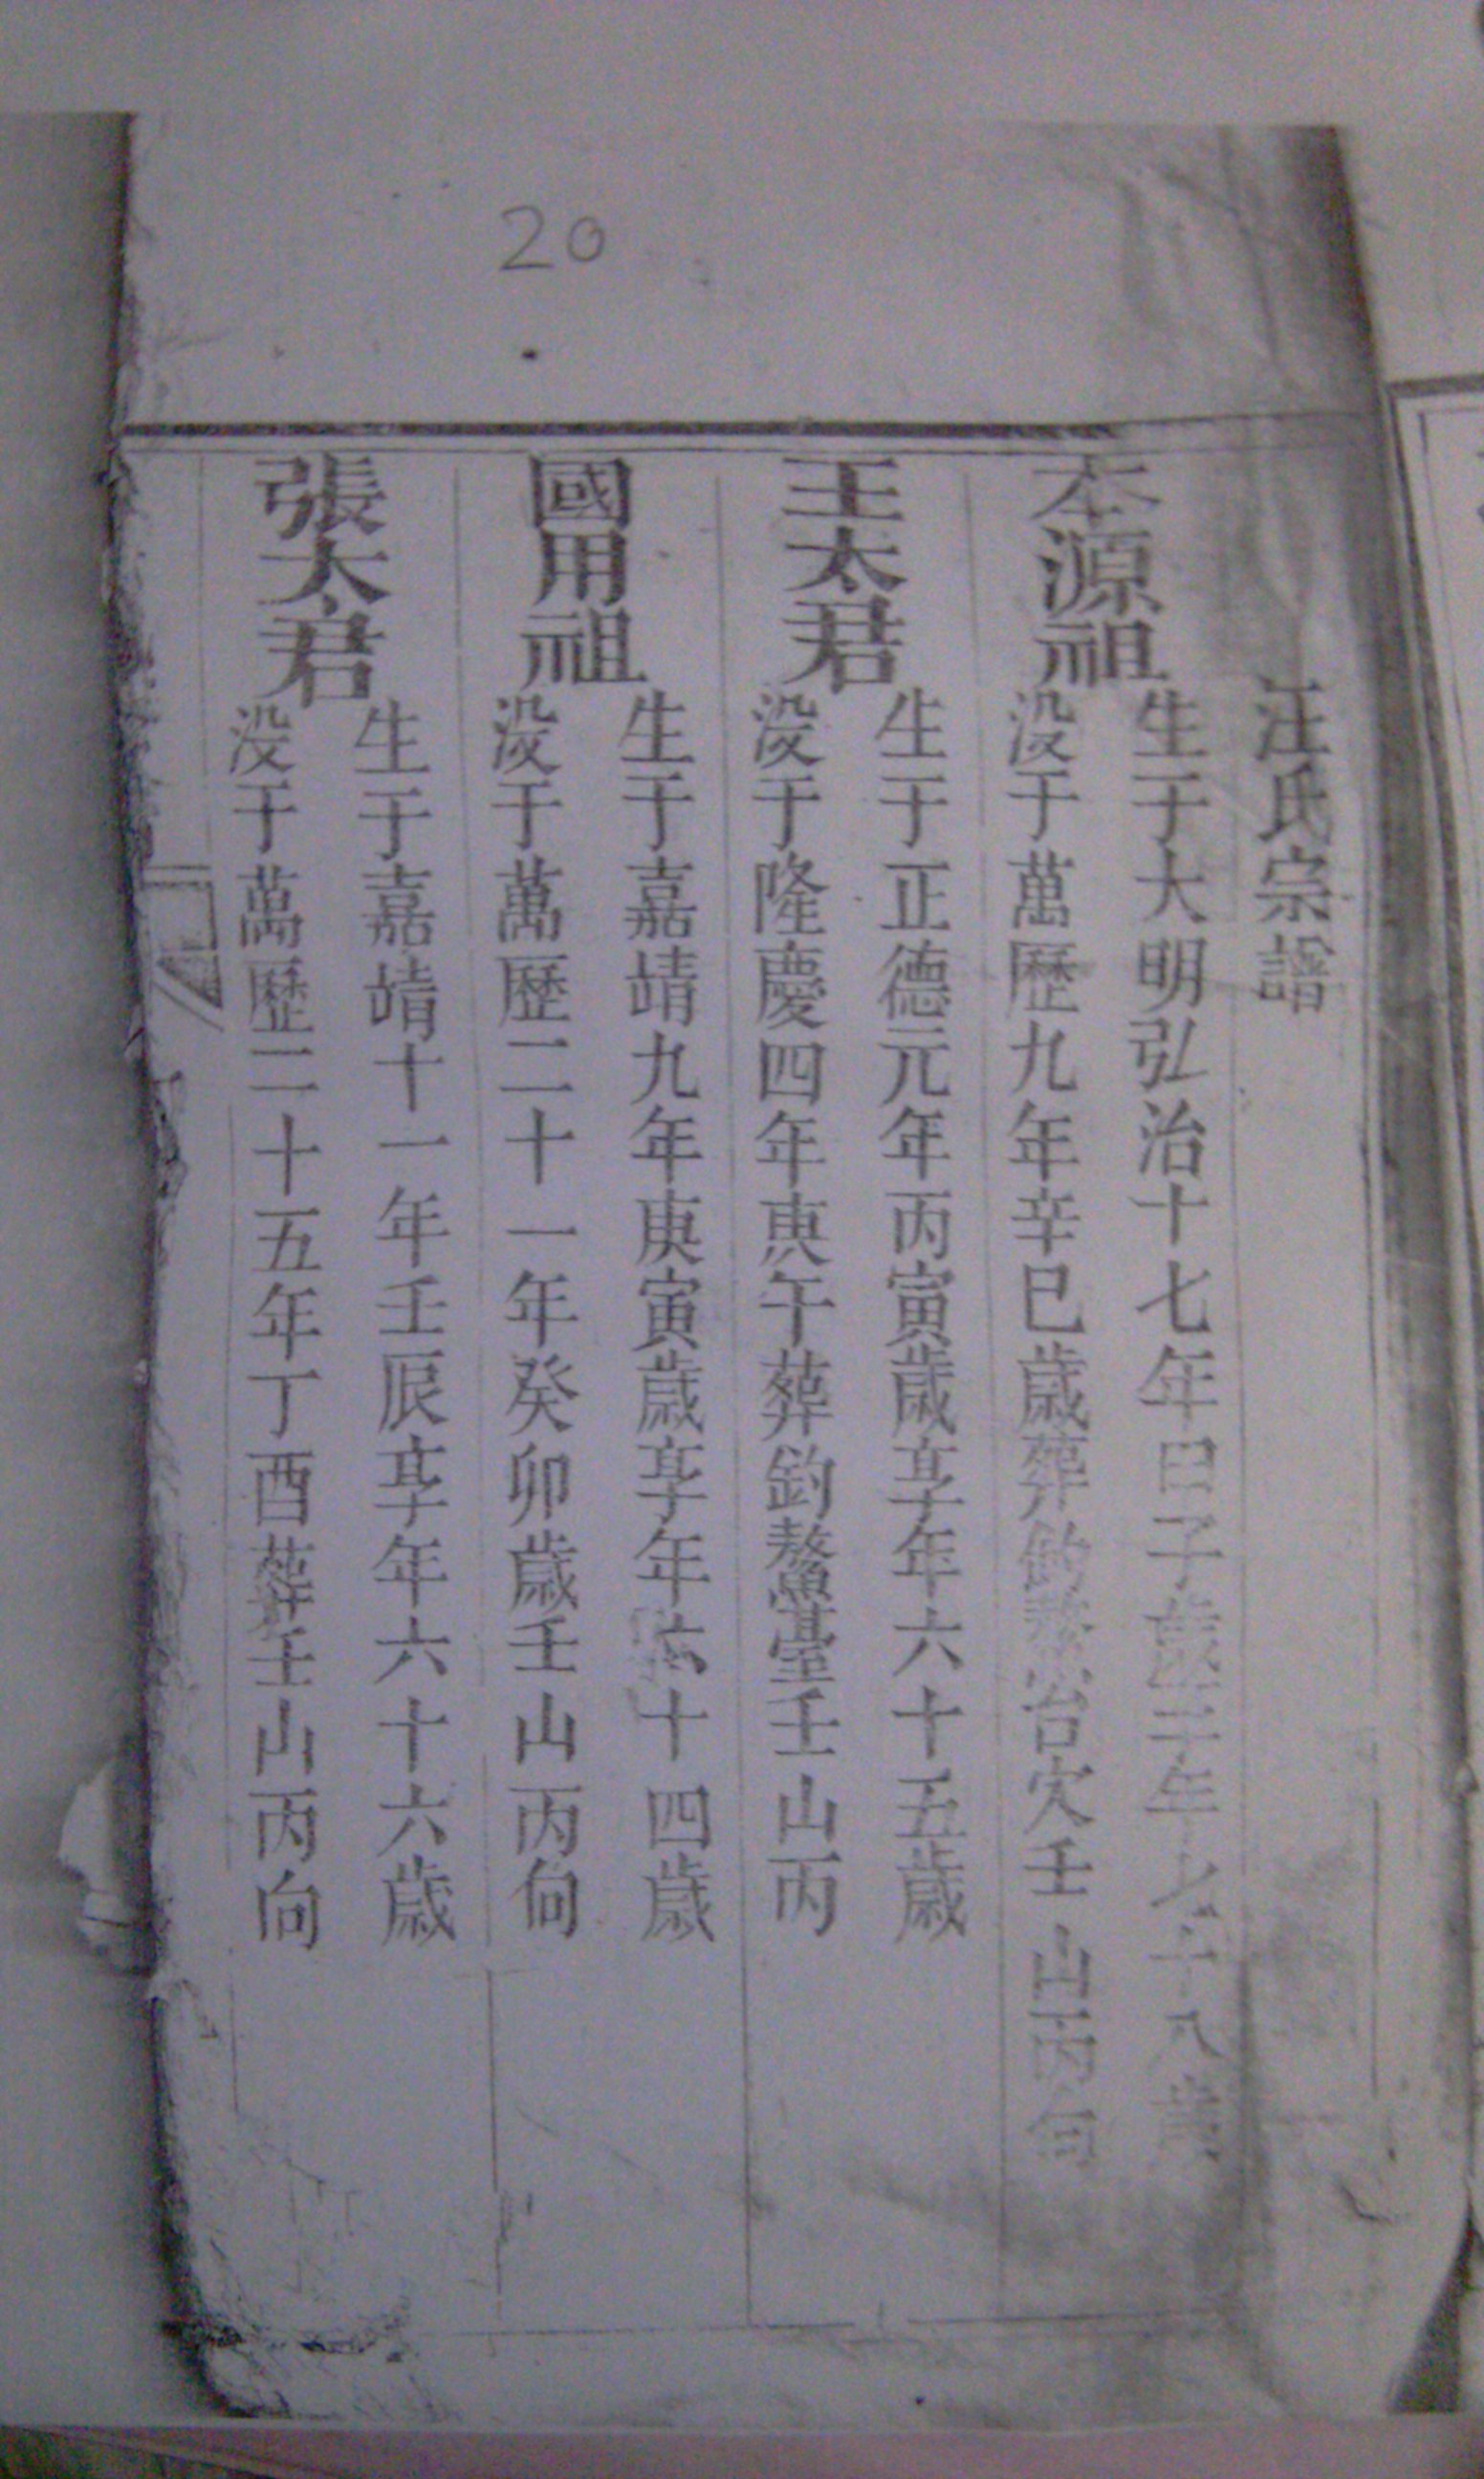 20
汪氏宗譜
本源祖
生于大明弘治十七年
没于萬歷九年辛巳歲葬釣 台穴壬山丙向
王太君
生于正德元年丙寅歲享年六十五歲
没于隆慶四年庚午葬釣鰲臺壬山丙
國用祖
生于嘉靖九年庚寅歲享年六十四歲
没于萬歷二十一年癸卯歲壬山丙向
張太君
生于嘉靖十一年壬辰享年六十六歲
没于萬歷二十五年丁酉葬壬山丙向